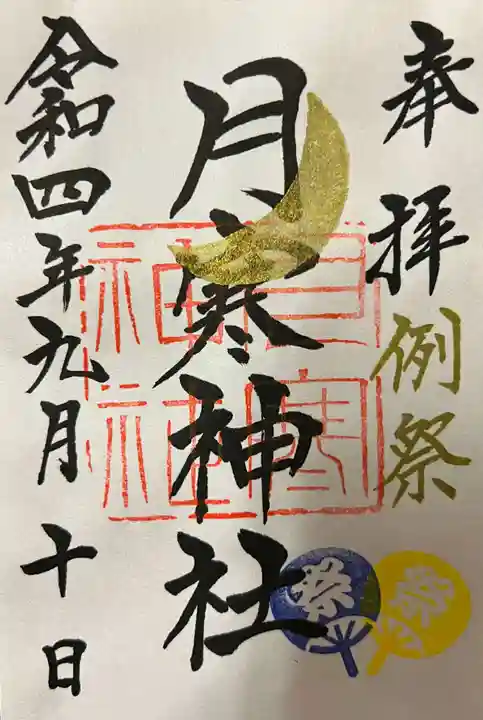 奉拝
例祭
月寒神社
月寒神社
令和四年九月十日
祭
祭